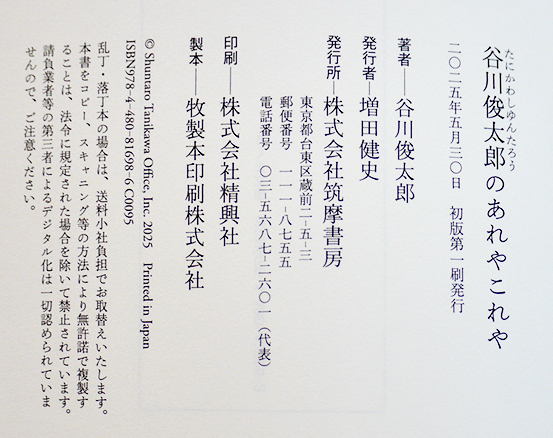 たにかわしゆんたろう
谷川俊太郎のあれやこれや
二〇二五年五月三〇日　初版第一刷発行
著者──谷川俊太郎
発行者──増田健史
発行所──株式会社筑摩書房
東京都台東区蔵前二-五-三
郵便番号　一一一-八七五五
電話番号　〇三-五六八七-二六〇一（代表）
印刷──株式会社精興社
製本──牧製本印刷株式会社
© Shuntaro Tanikawa Office, Inc. 2025　Printed in Japan
ISBN978-4-480-81698-6 C0095
乱丁・落丁本の場合は、送料小社負担でお取替えいたします。
本書をコピー、スキャニング等の方法により無許諾で複製す
ることは、法令に規定された場合を除いて禁止されています。
請負業者等の第三者によるデジタル化は一切認められていま
せんので、ご注意ください。